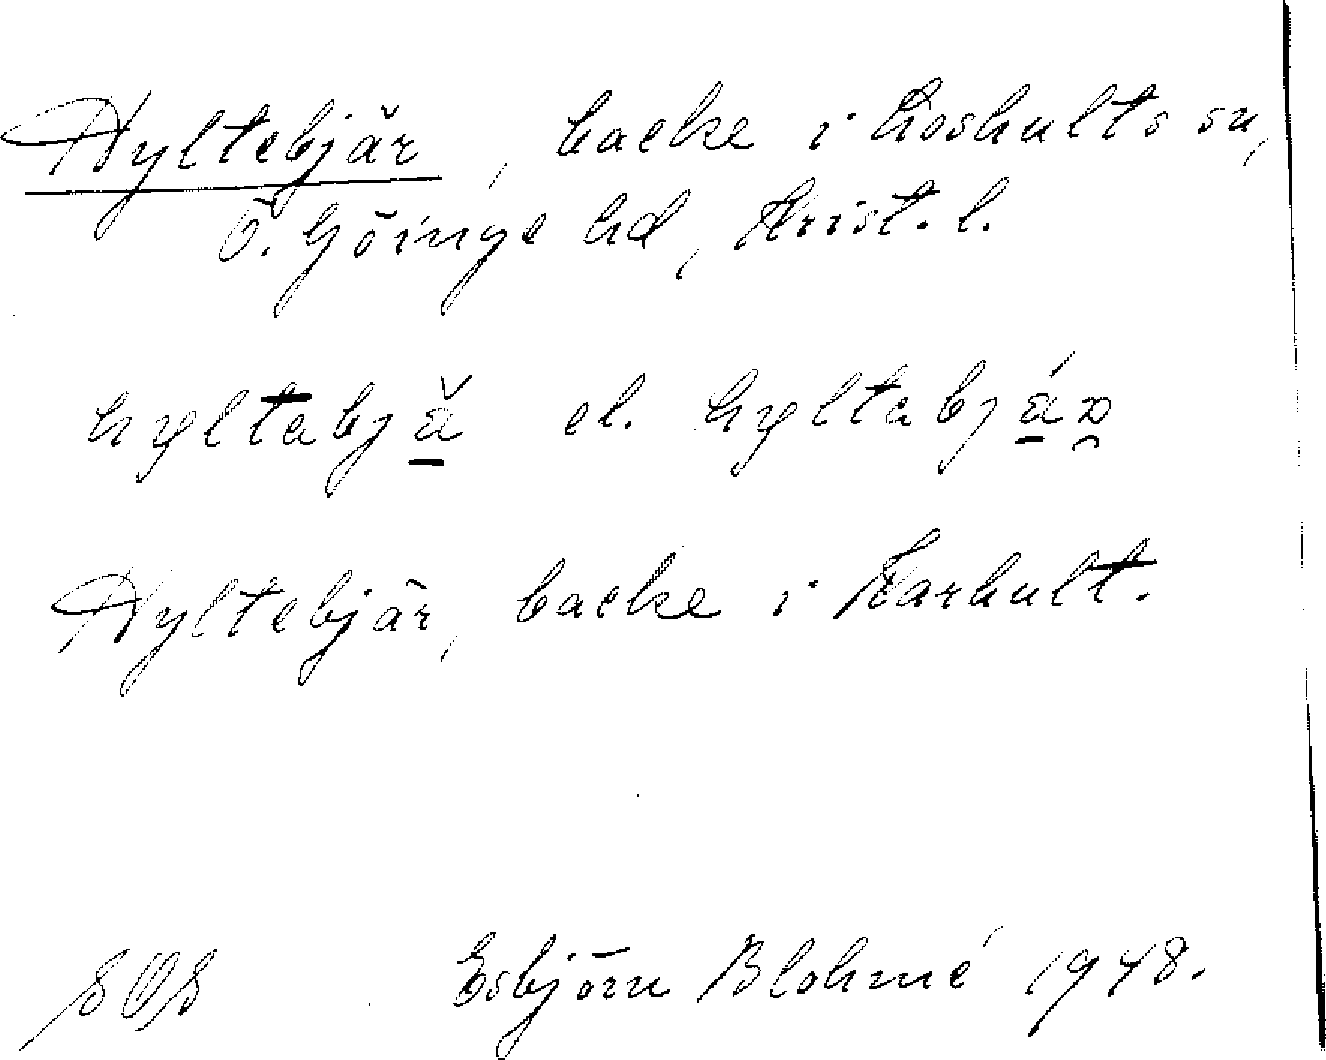 Hyltebjär, backe i Loshults sn,
Ö. Göinge hd, Krist. l.
hyltabjǎ el. hyltabján
Hyltebjär, backe i Karhult.
SOS Esbjörn Blohmé 1948.